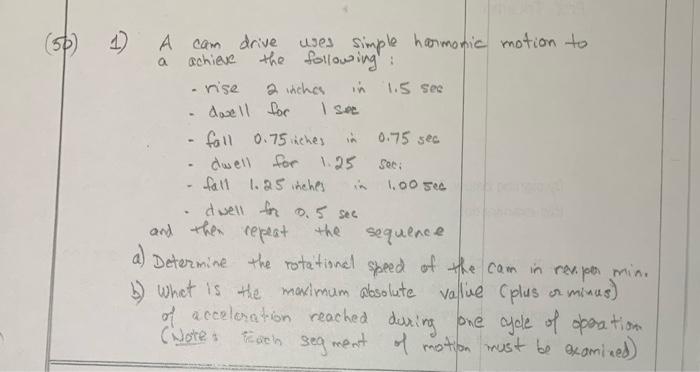 (50) 1) A cam drive uses simple harmonic motion to
a achieve the following :
- rise 2 inches in 1.5 sec
- dwell for 1 sec
- fall 0.75 inches in 0.75 sec
- dwell for 1.25 sec.
- fall 1.25 inches in 1.00 sec
- dwell for 0.5 sec
and then repeat the sequence
a) Determine the rotational speed of the cam in rev. per min.
b) What is the maximum absolute value (plus or minus)
of acceleration reached during one cycle of operation
(Note: Each segment of motion must be examined)